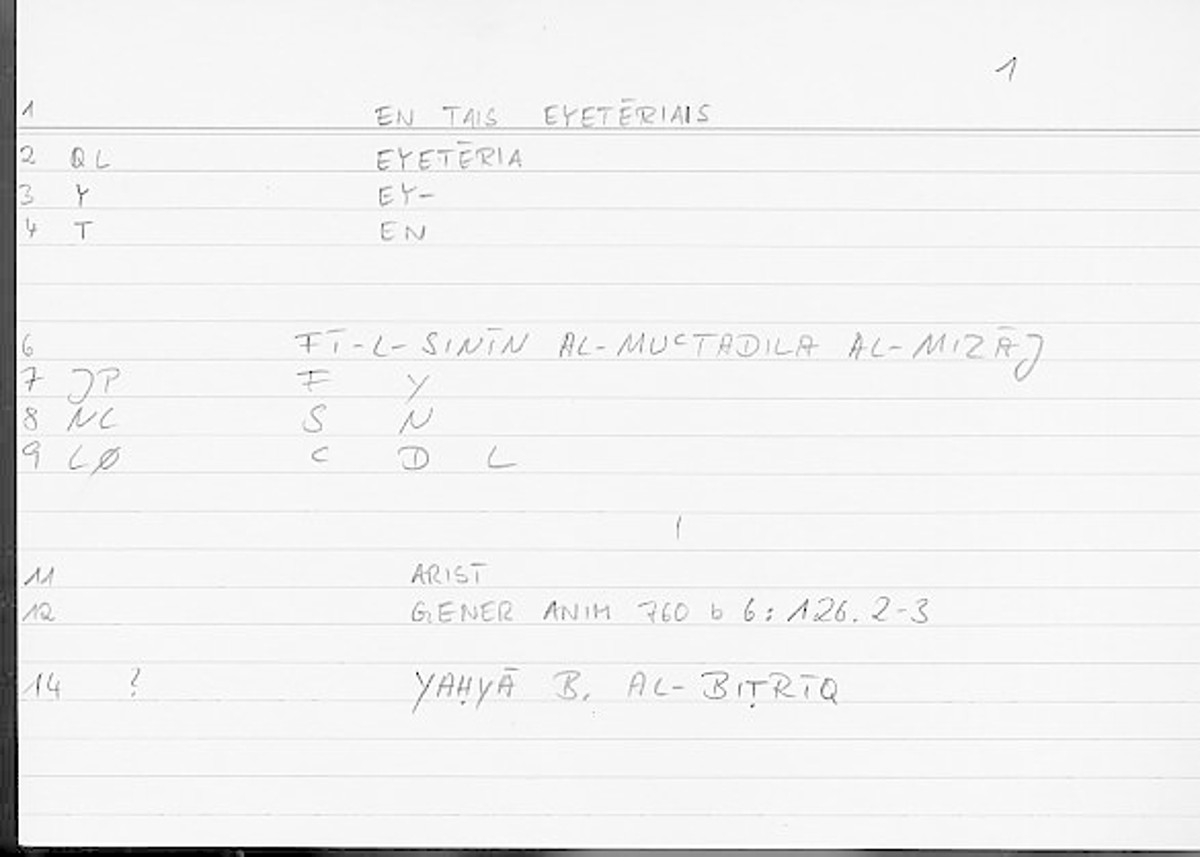 1
1 EN TAIS EYETĒRIAIS
2 QL EYETĒRIA
3 Y EY-
4 T EN
6 FĪ-L-SINĪN AL-MUCTADILA AL-MIZĀJ
7 JP F Y
8 NC S N
9 LØ C D L
1
11 ARIST
12 GENER ANIM 760 b 6: 126.2-3
14 ? YAḤYĀ B. AL-BIṬRĪQ